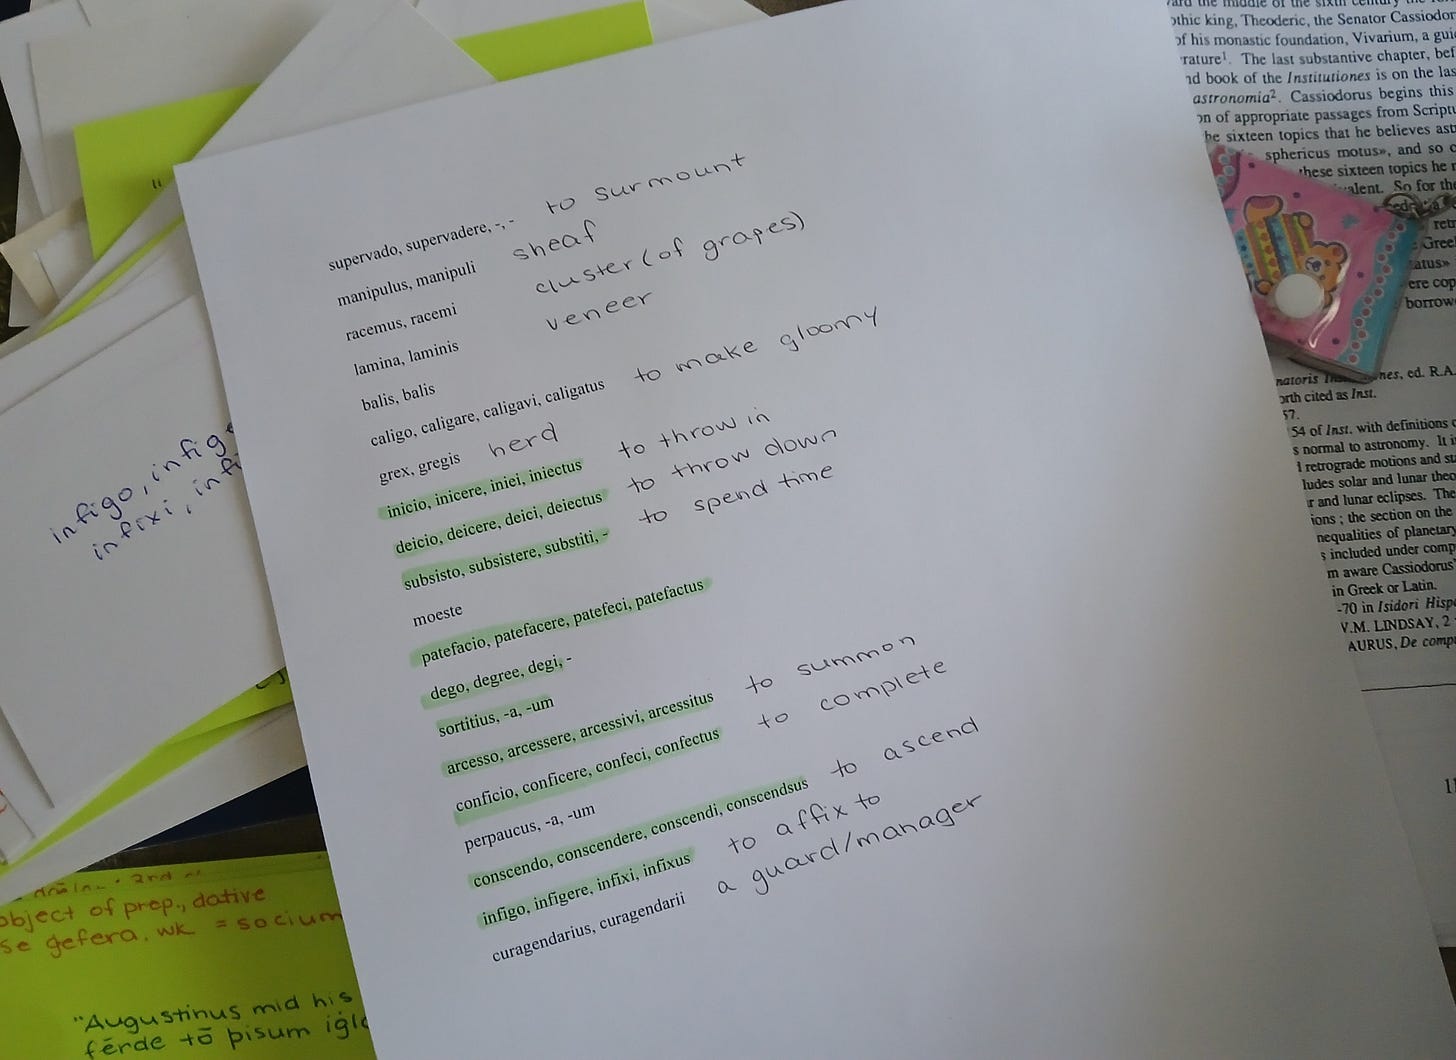 supervado, supervadere, -, - to surmount
manipulus, manipuli sheaf
racemus, racemi cluster (of grapes)
lamina, laminis veneer
balis, balis
caligo, caligare, caligavi, caligatus to make gloomy
grex, gregis herd
inicio, inicere, iniei, iniectus to throw in
deicio, deicere, deici, deiectus to throw down
subsisto, subsistere, substiti, - to spend time
moeste
patefacio, patefacere, patefeci, patefactus
dego, degree, degi, -
sortitius, -a, -um
arcesso, arcessere, arcessivi, arcessitus to summon
conficio, conficere, confeci, confectus to complete
perpaucus, -a, -um
conscendo, conscendere, conscendi, conscendsus to ascend
infigo, infigere, infixi, infixus to affix to
curagendarius, curagendarii a guard/manager
infigo, infige
infixi, infi
object of prep., dative
se gefera, wk = socium
"Augustinus mid his
fērde tō þisum
the middle of the sixth century
king, Theoderic, the Senator Cassiodor
of his monastic foundation, Vivarium, a gui
rature¹. The last substantive chapter, bef
nd book of the Institutiones is on the las
astronomia². Cassiodorus begins this
on of appropriate passages from Scriptu
he sixteen topics that he believes ast
sphericus motus», and so
these sixteen topics he
valent. So for the
retr
Gree
atus»
ere cop
borrow
natoris nes, ed. R.A.
orth cited as Inst.
57.
54 of Inst. with definitions
s normal to astronomy. It i
l retrograde motions and su
ludes solar and lunar theo
r and lunar eclipses. The
ions ; the section on the
nequalities of planetary
s included under comp
m aware Cassiodorus'
in Greek or Latin.
-70 in Isidori Hisp
W.M. LINDSAY, 2
AURUS, De comp